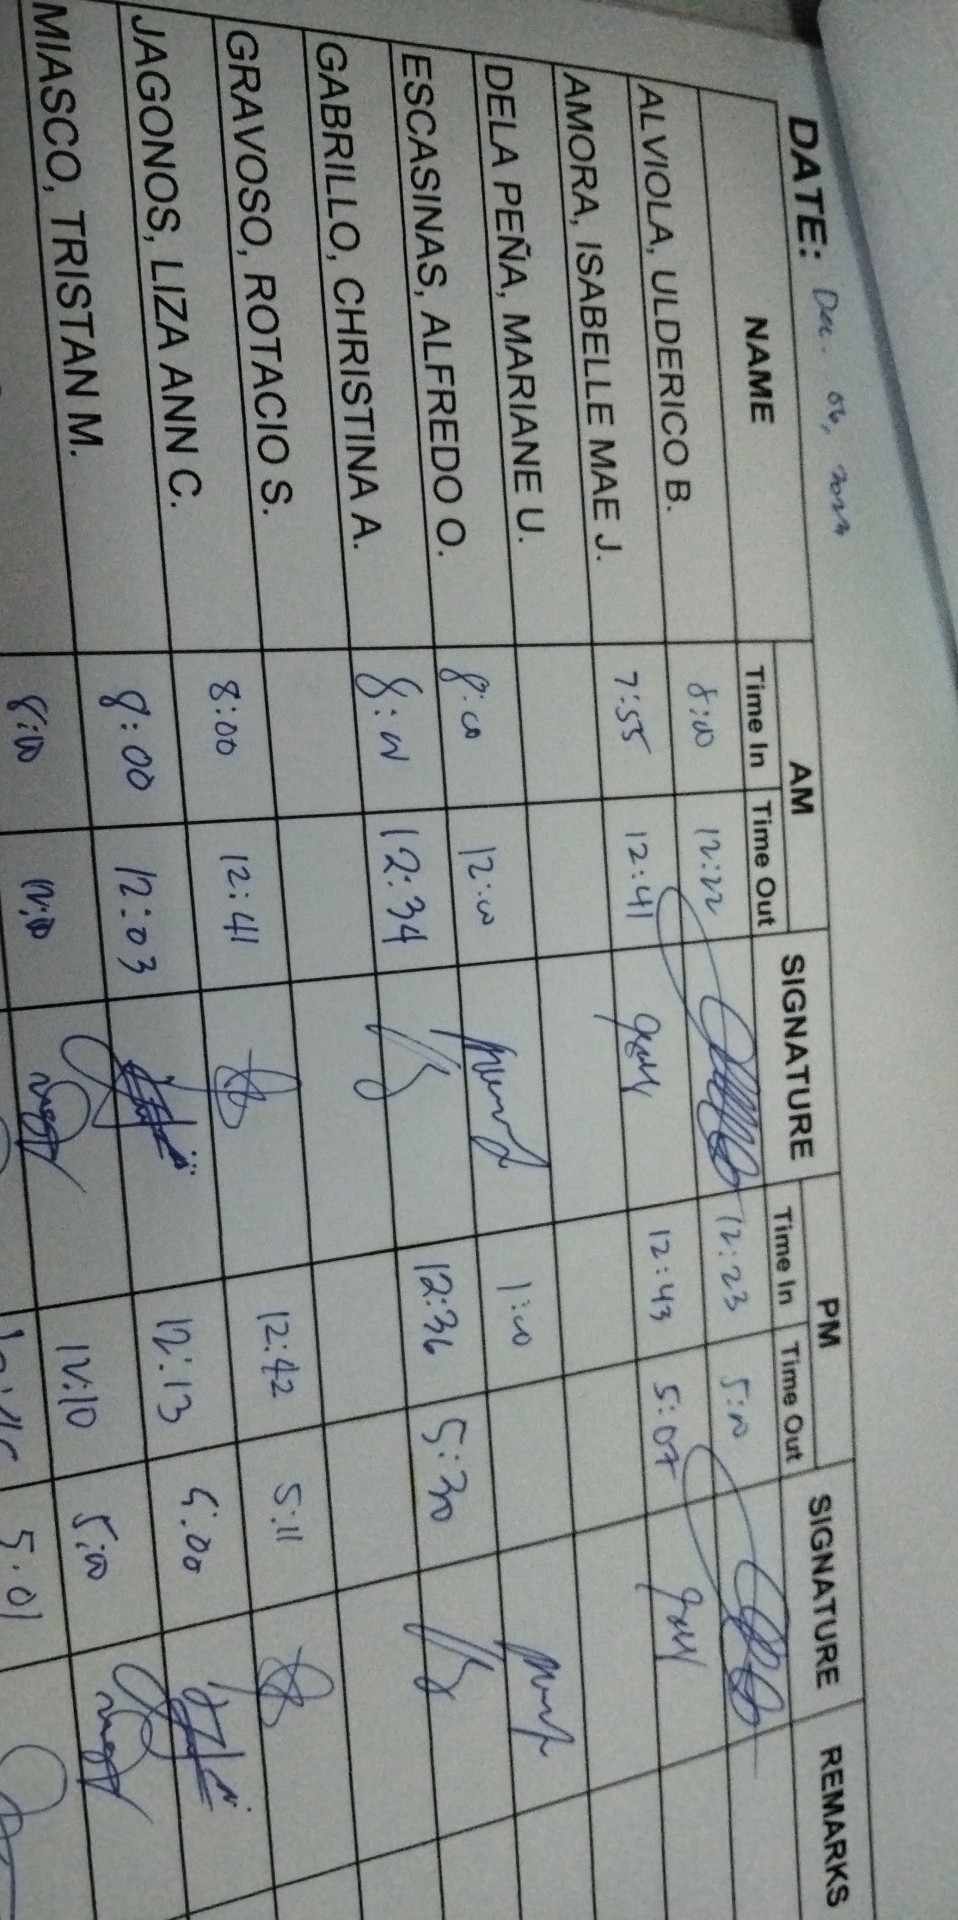 DATE: Dec. 06, 2024
AM PM
NAME Time In Time Out SIGNATURE Time In Time Out SIGNATURE REMARKS
ALVIOLA, ULDERICO B. 8:00 12:22 12:23 5:00
AMORA, ISABELLE MAE J. 7:55 12:41 12:43 5:07
DELA PEÑA, MARIANE U.
ESCASINAS, ALFREDO O. 8:00 12:00 1:00
GABRILLO, CHRISTINA A. 8:00 12:34 12:36 5:30
GRAVOSO, ROTACIO S.
JAGONOS, LIZA ANN C. 8:00 12:41 12:42 5:11
MIASCO, TRISTAN M. 8:00 12:03 12:13 5:00
8:00 12:00 12:10 5:00
5:01